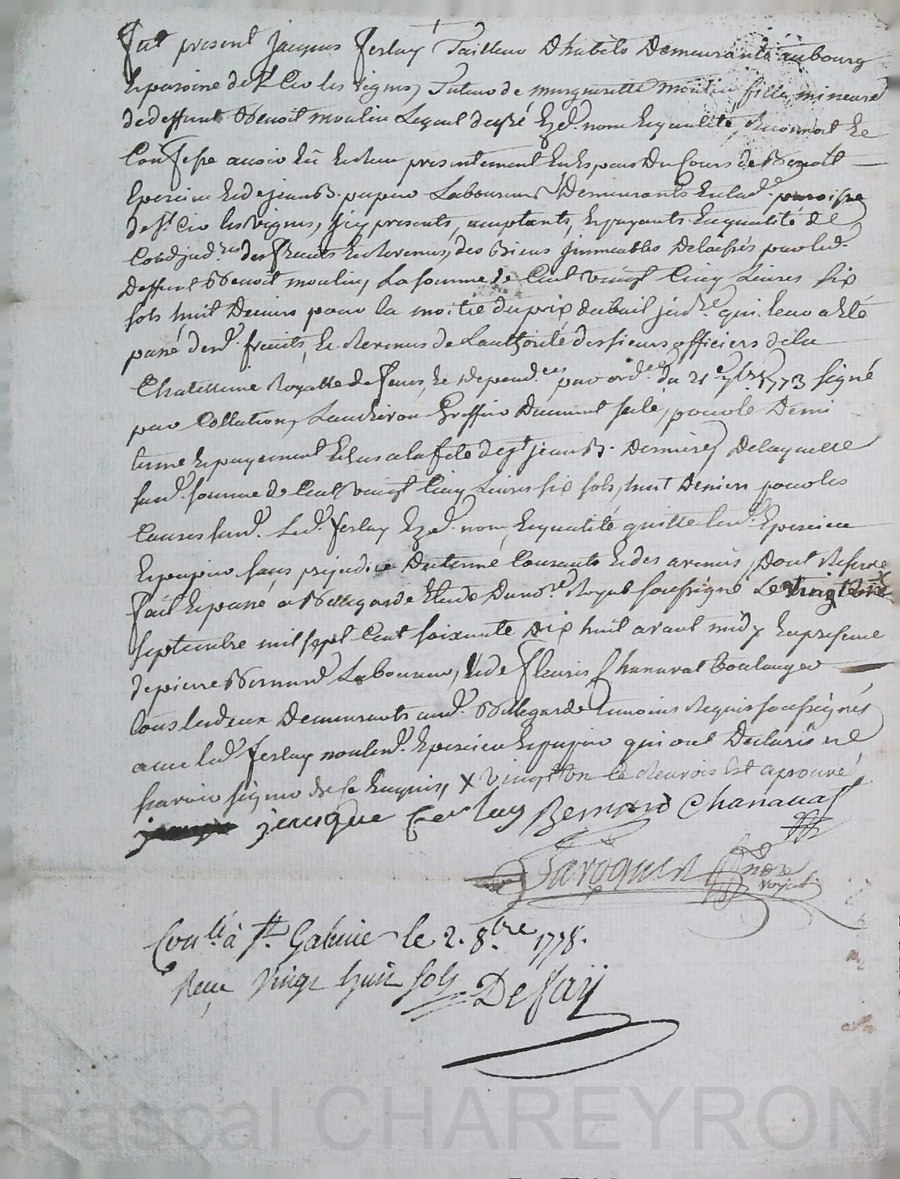 fut present jacques ferlay Tailleur Dhabits Demeurant au bourg
Et paroisse de St Cir les vignes, Tuteur de marguerite moulin fille mineure
de deffunt Benoit moulin Lequel de gré Ezd. nom Et qualité, Reconnoit Et
Confesse avoir Eû Et Reçu presentement Et des pars Du Cours de Benoit
Epercieu Et de jean B. papin Laboureurs Demeurants En lad. paroisse
de St Cir les vignes, Icy presents, acceptants, Et payants En qualité de
des fruits Et Revenus, des Biens Immeubles Delaissés par led.
Deffunt Benoit moulin, La somme de Cent vingt Cinq Livres six
sols huit Deniers pour la moitié du prix du bail judre qui leur a été
passé desd. fruits, Et Revenus de Lauthorité des sieurs officiers de la
Chatellenie Royalle de feurs, Et Depend.ces par ord.ce du 21e 7bre 1773 signé
par Collation, Griffier Duement sçelé, pour le Demi
terme Et payement Echus a la fete de St jean B. Derniere, De laquelle
susd. somme de Cent vingt Cinq Livres six sols, huit Deniers pour les
Causes susd. Led. ferlay Ezd. nom, Et qualité quitte lesd. Epercieu
Et papin sans prejudice Du terme Courant Et des avenir, Dont Reserve
fait Et passé a Bellegarde Etude Du nore Royal soussigné Le vingt
septembre mil sept Cent soixante Dix huit avant midy En presence
de pierre Bernard Laboureur, Et de fleuris Chanavat Boulanger
tous les deux Demeurants aud. Bellegarde temoins Requis soussignés
avec led. ferlay non lesd. Epercieu Et papin qui ont Declaré ne
sçavoir signer de ce Enquis, X vingt un Le Renvois Est aprouvé
jacque Ferlay Bernard Chanavat
Conlé à St Galmier le 2. 8bre 1778.
Reçu vingt huit sols Defaÿ
Pascal CHAREYRON